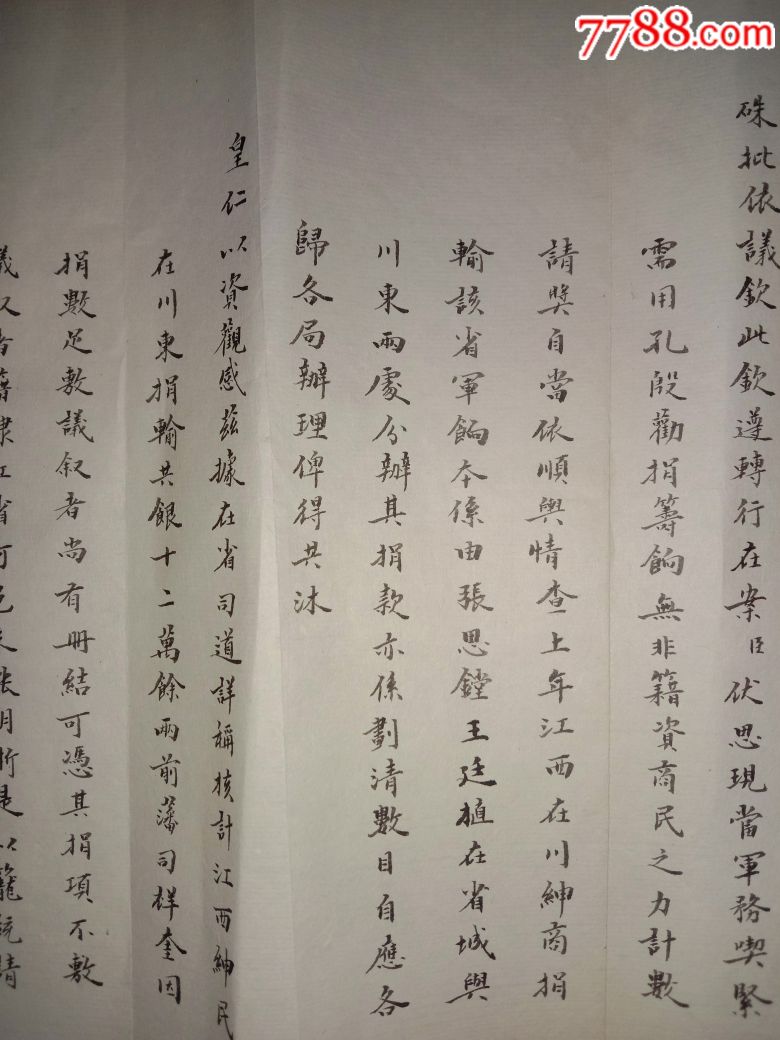 7788.com
硃批依議欽此欽遵轉行在案臣伏思現當軍務喫緊
需用孔殷勸捐籌餉無非籍資商民之力計數
請奬自當依順輿情查上年江西在川紳商捐
輸該省軍餉本係由張思鏜王廷植在省城與
川東兩處分辦其捐款亦係劃清數目自應各
歸各局辦理俾得共沐
皇仁以資觀感茲據在省司道詳稱核計江西紳民
在川東捐輸共銀十二萬餘兩前藩司祥奎因
捐數足敷議叙者尚有冊結可憑其捐項不敷
議叙者籍隸江省